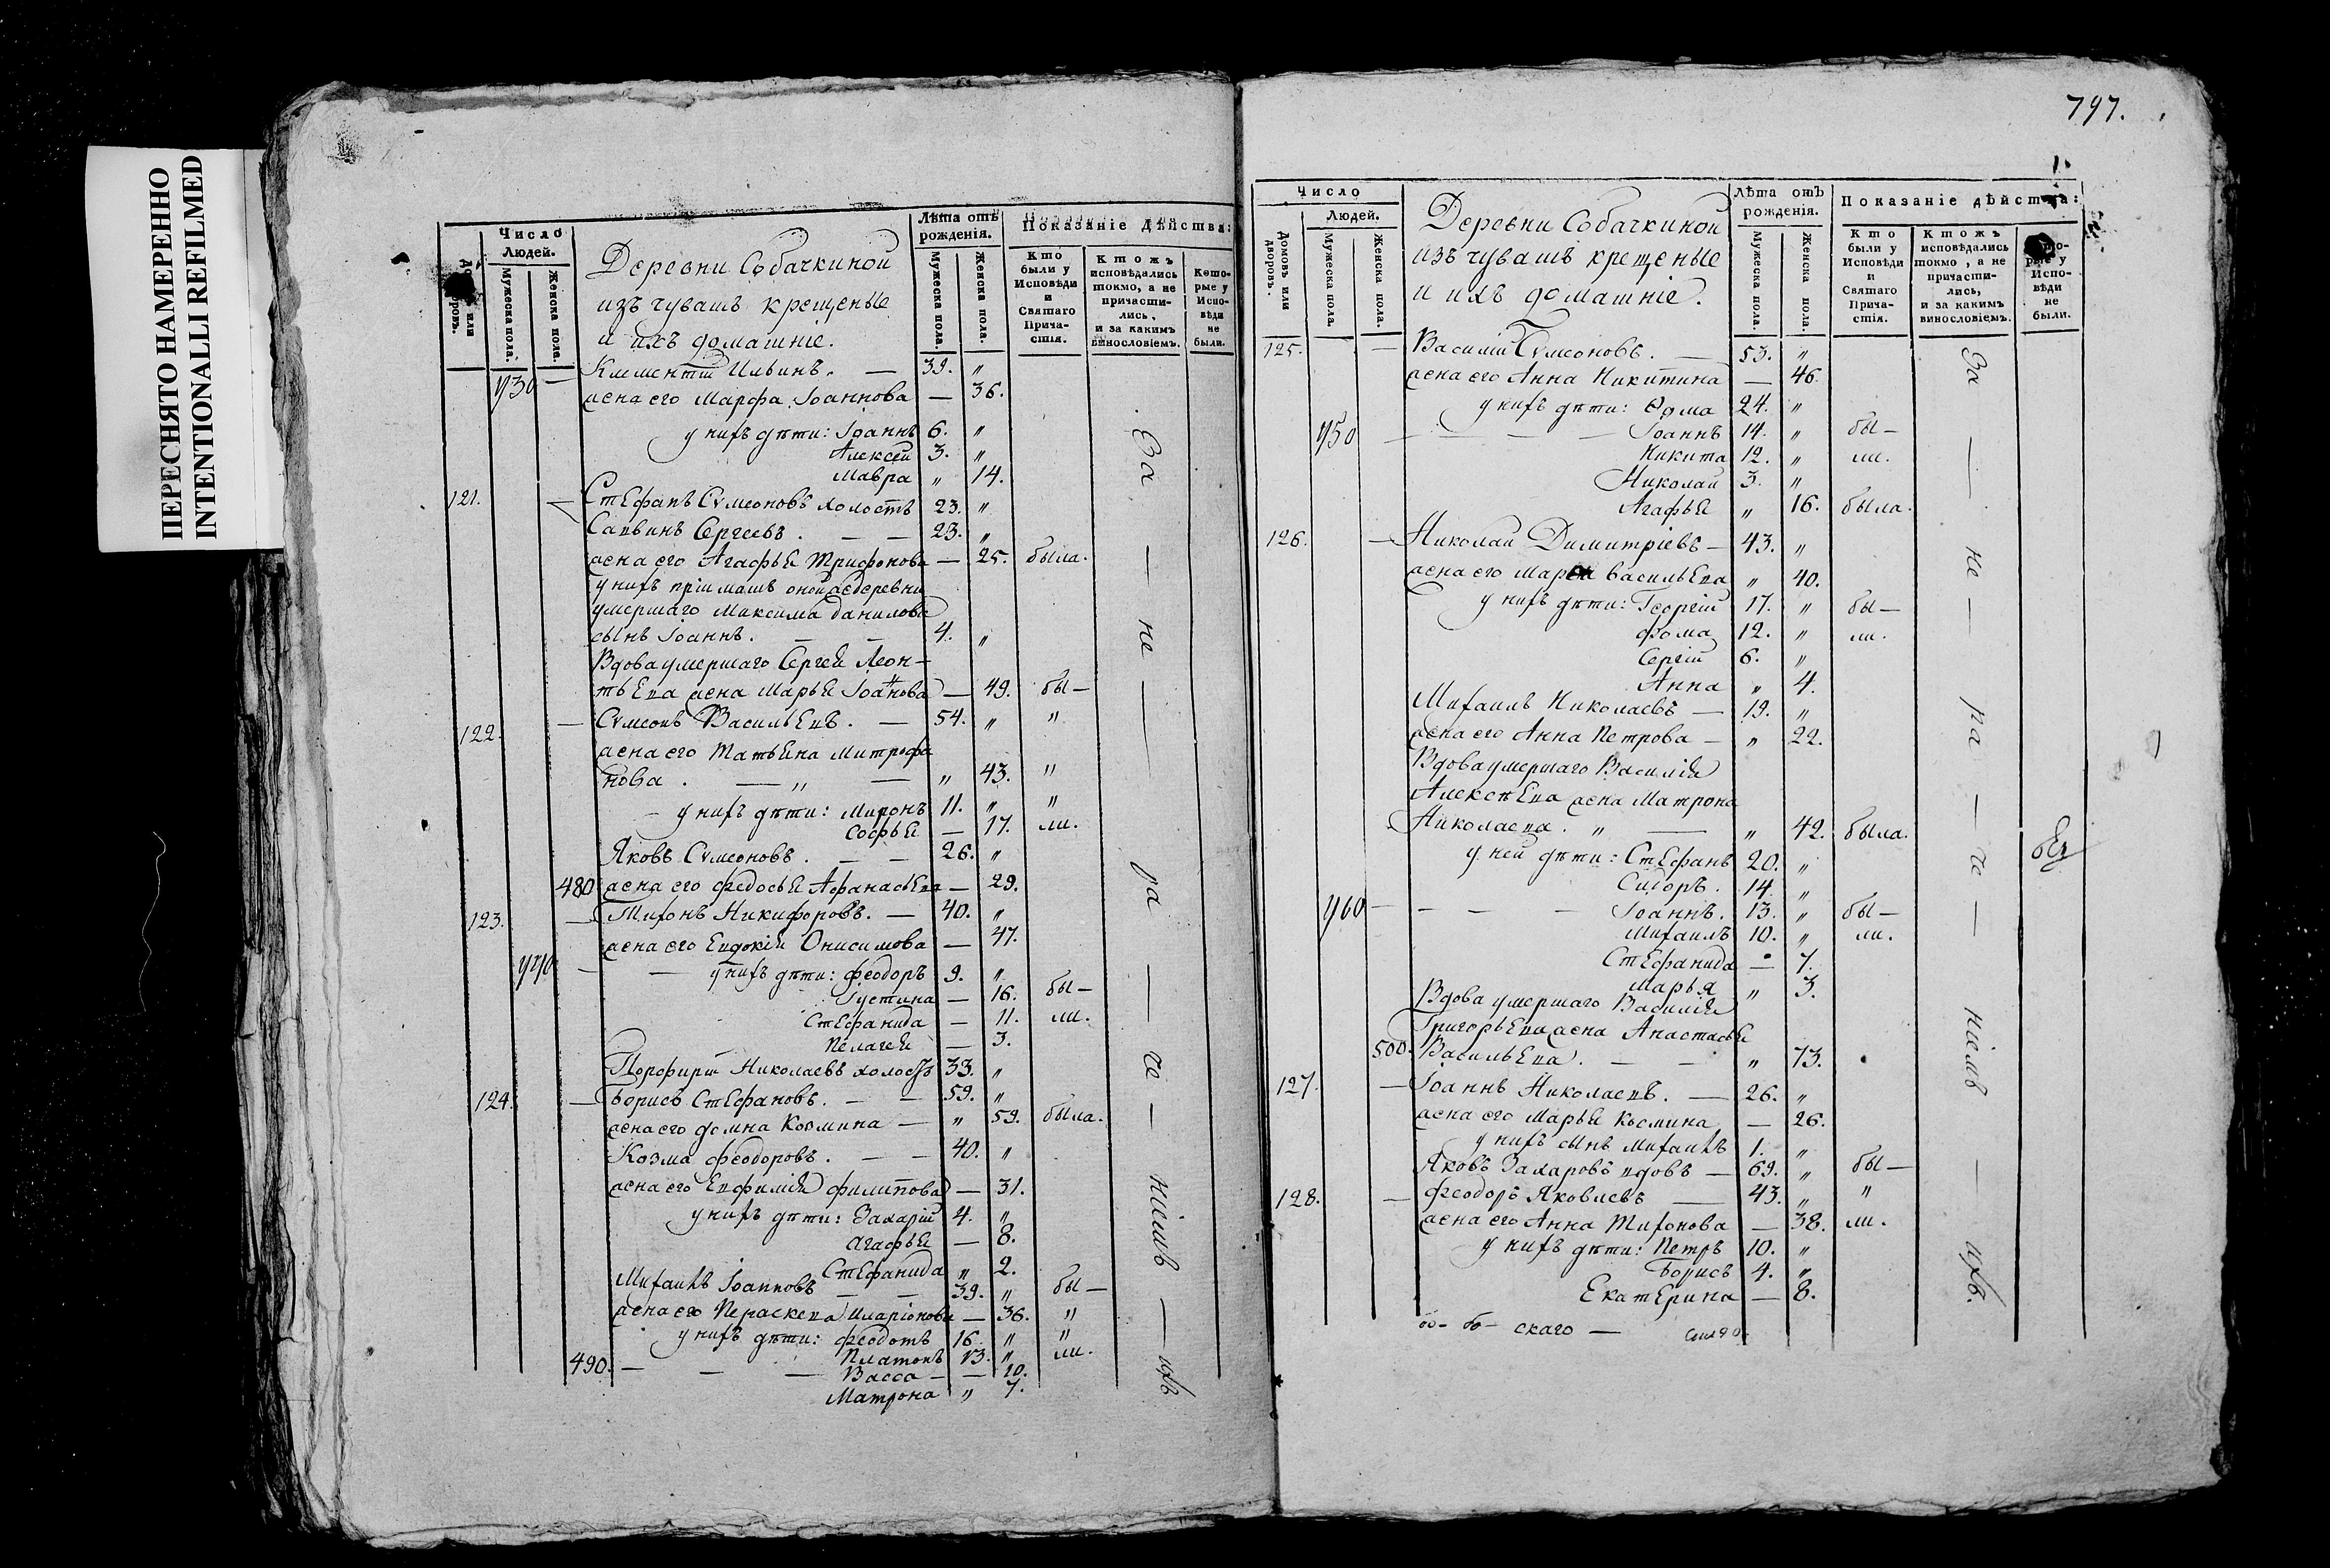 ПЕРЕСНЯТО НАМЕРЕННО
INTENTIONALLI REFILMED
Число
Людей.
Мужеска пола.
Женска пола.
Деревни Собачкиной
изъ чувашъ крещеные
и ихъ домашніе.
Лѣта отъ
рожденія.
Мужеска пола.
Женска пола.
Показаніе дѣйства:
Кто
были у
Исповѣди
и
Святаго
Прича-
стія.
Ктожъ
исповѣдались
токмо, а не
причасти-
лись,
и за какимъ
винословіемъ.
Кото-
рые у
Испо-
вѣди
не
были.
Климентій Ильинъ. — 39. "
жена его Марфа Іоаннова — 36.
у нихъ дѣти: Іоаннъ 6. "
Алексѣй 3. "
Мавра " 14.
121. Стефанъ Сѵмеоновъ холостъ 23. "
Саввинъ Сергеевъ. — — 23. "
жена его Агафья Трифонова — 25. была.
умершаго Максима Данилова
сынъ Іоаннъ. — — 4. "
Вдова умершаго Сергея Леон-
тьева жена Марья Іоаннова — 49. бы—
122. — Сѵмеонъ Васильевъ. — 54. " "
жена его Татьяна Митрофа
нова. — " — " 43. "
— у нихъ дѣти: Миронъ 11. " "
Софья — 17. ли.
Яковъ Сѵмеоновъ. — — 26. "
480 жена его Федосья Афанасьева — 29.
123. — Тихонъ Никифоровъ. — 40. "
жена его Евдокія Онисимова — 47.
— — у нихъ дѣти: Феодоръ 9. "
Іустина — 16. бы—
Стефанида — 11. ли.
Пелагея — 3.
Порфирій Николаевъ холостъ 33. "
124. — Борисъ Стефановъ. — — 59. "
жена его Домна Козмина — " 59. была.
Козма Феодоровъ. — — 40. "
жена его Евфимія Филипова — 31.
у нихъ дѣти: Захарій 4. "
Агафья — 8.
Стефанида " 2.
Михаилъ Іоанновъ — — 39. " бы—
жена его Параскева Иларіонова — 36. "
у нихъ дѣти: Феодотъ 16. " "
Платонъ 13. " ли.
490. — — — Васса — — 10.
Матрона " 7.
За — не — ра — че — ніемъ — ихъ
797.
Число
Людей.
Домовъ или
дворовъ.
Мужеска пола.
Женска пола.
Деревни Собачкиной
изъ чувашъ крещеные
и ихъ домашніе.
Лѣта отъ
рожденія.
Мужеска пола.
Женска пола.
Показаніе дѣйства:
Кто
были у
Исповѣди
и
Святаго
Прича-
стія.
Ктожъ
исповѣдались
токмо, а не
причасти-
лись,
и за какимъ
винословіемъ.
рые у
Испо-
вѣди
не
были.
125. — Василій Сѵмеоновъ. — 53. "
жена его Анна Никитина — 46.
у нихъ дѣти: Ѳома 24. "
— — — — Іоаннъ 14. " бы—
Никита 12. " ли.
Николай 3. "
Агафья " 16. была.
126. — Николай Димитріевъ — 43. "
жена его Марья Васильева " 40.
у нихъ дѣти: Георгій 17. " бы—
Фома 12. " ли.
Сергій 6. "
Анна " 4.
Михаилъ Николаевъ — 19. "
жена его Анна Петрова — " 22.
Вдова умершаго Василія
Алексѣева жена Матрона
Николаева. " — " 42. была.
у ней дѣти: Стефанъ 20. "
Сидоръ. 14. "
— — — — Іоаннъ. 13. " бы—
Михаилъ 10. " ли.
Стефанида — 7.
Марья " 3.
Вдова умершаго Василія
Григорьева жена Анастасья
500. Васильева. — — " 73.
127. — Іоаннъ Николаевъ. — 26. "
жена его Марья Косьмина — 26.
у нихъ сынъ Михаилъ 1. "
Яковъ Захаровъ вдовъ — 69. " бы—
128. — Феодоръ Яковлевъ — 43. " "
жена его Анна Тихонова — 38. ли.
у нихъ дѣти: Петръ 10. "
Борисъ 4. "
Екатерина — 8.
скаго —
За — не — ра — че — ніемъ — ихъ.